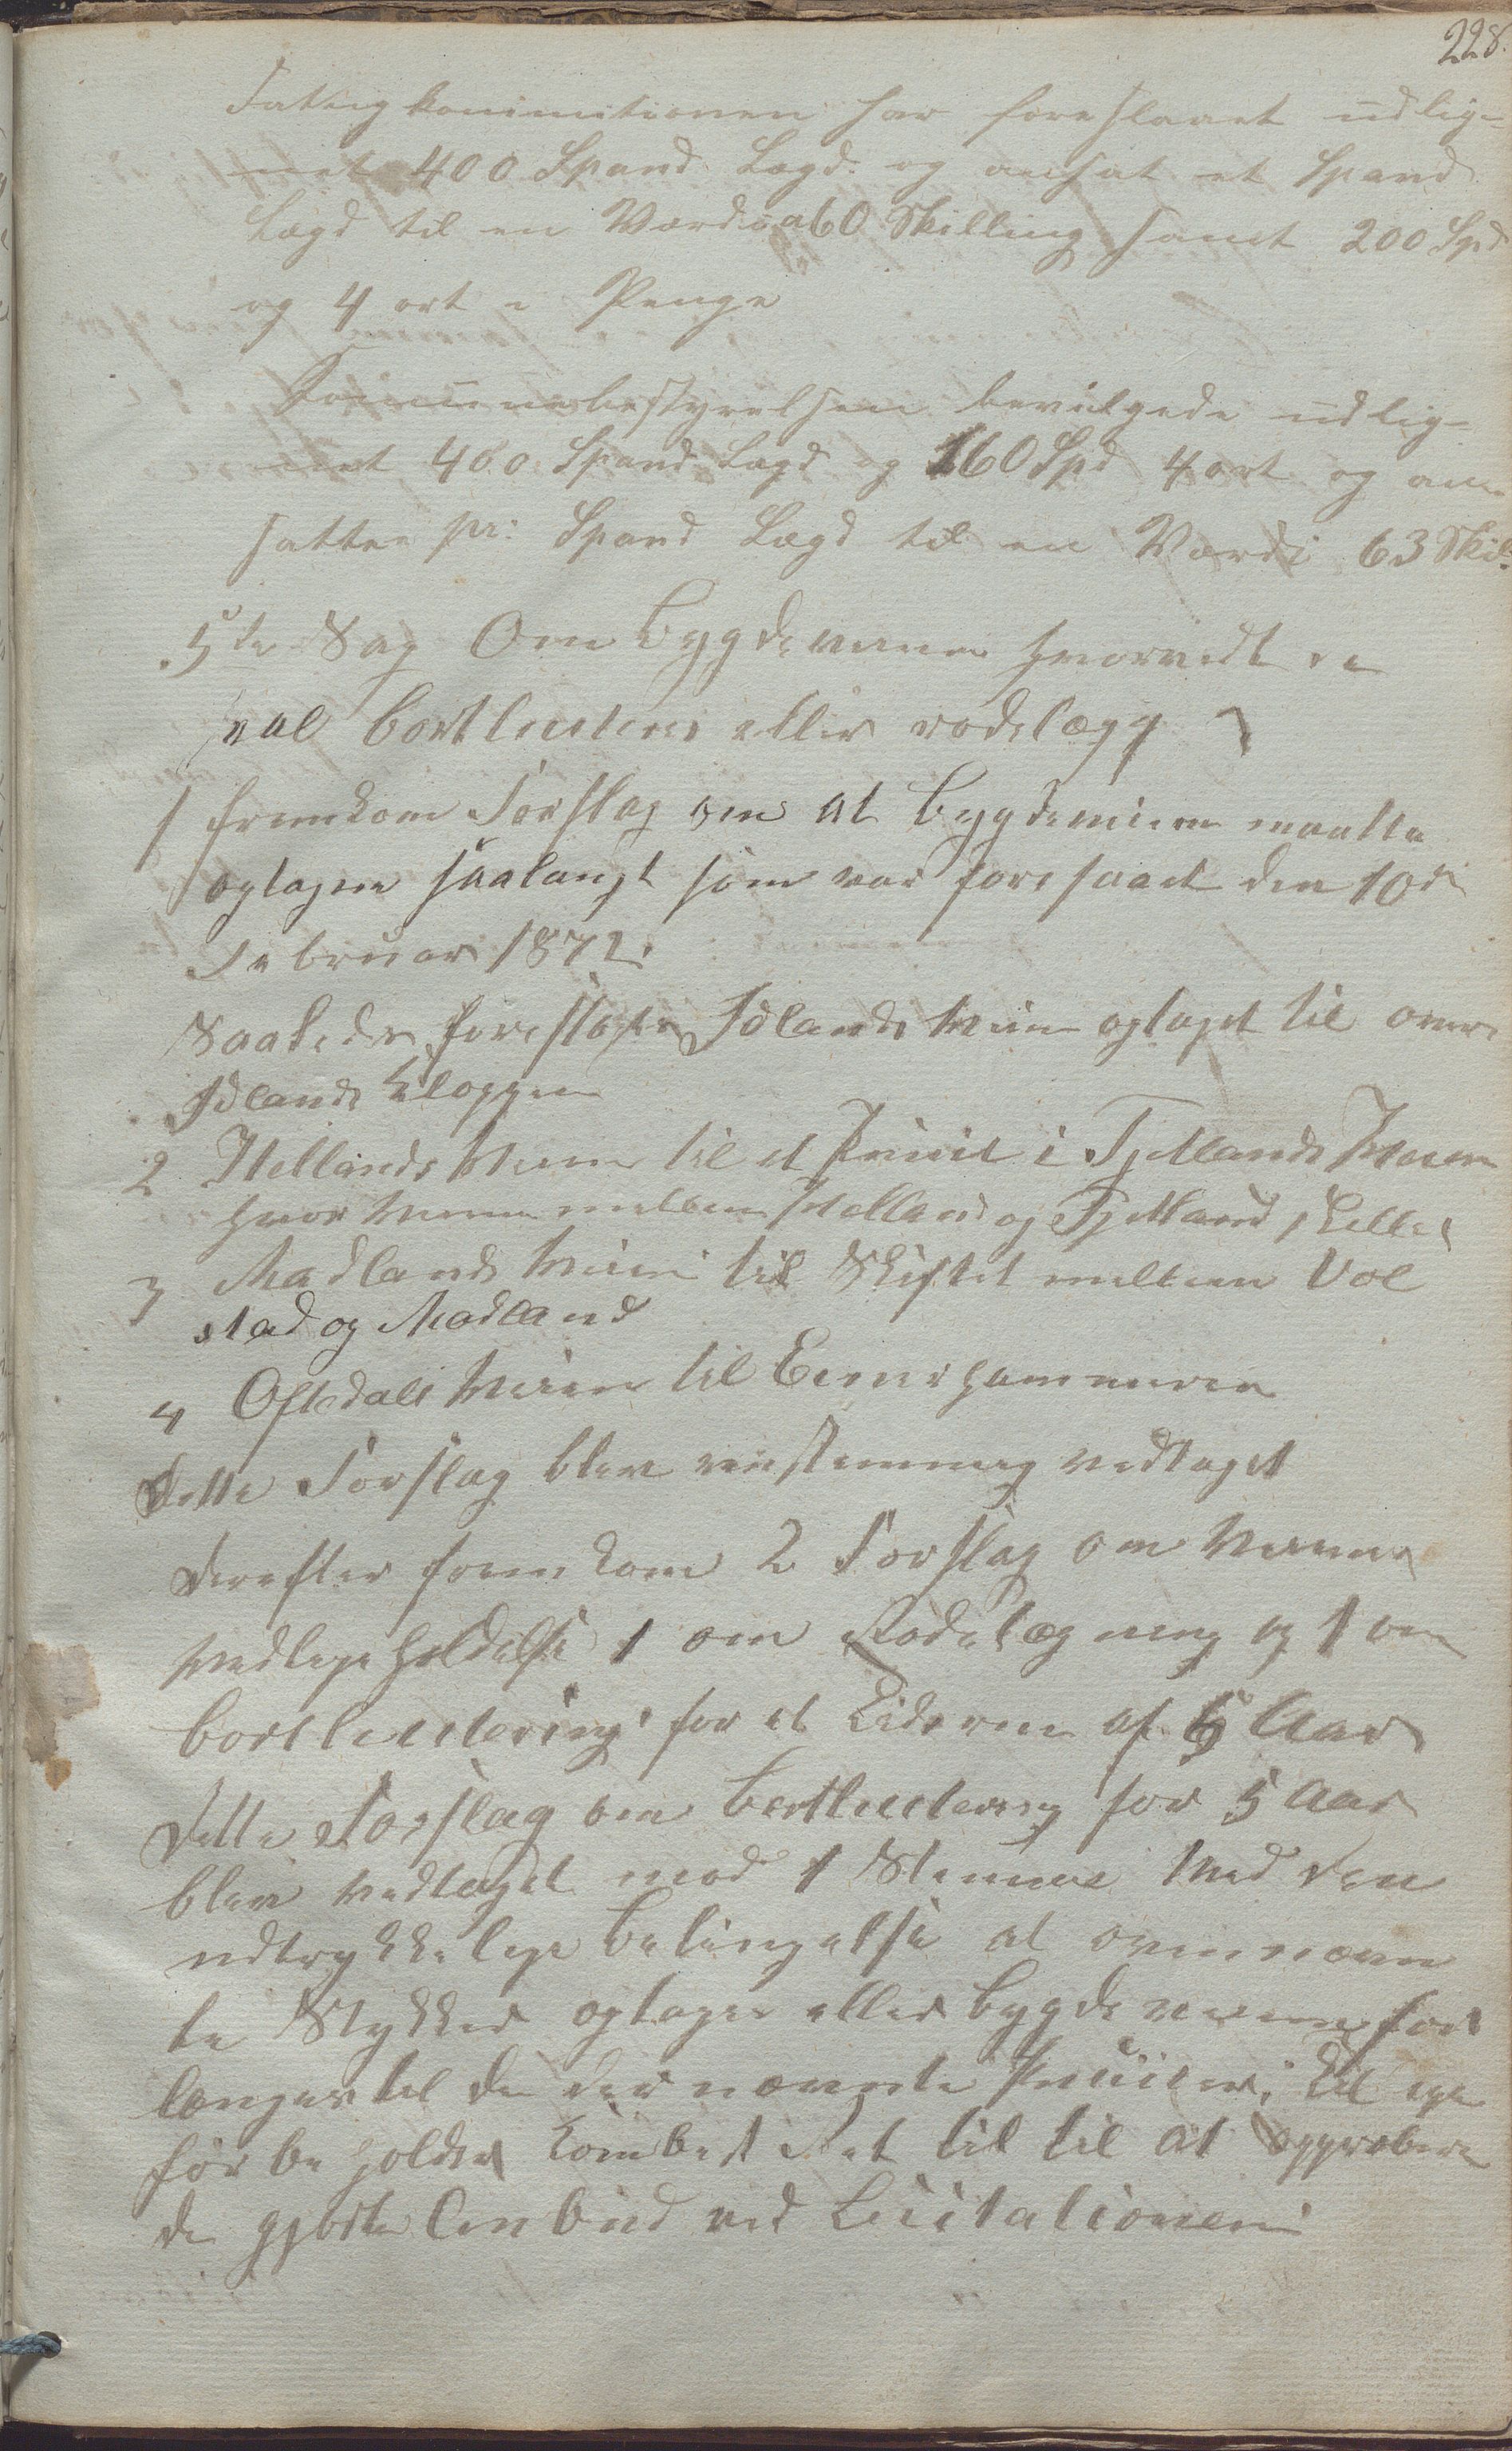 228.
Fattigkommitionen har foreslaaet udlig-
net 400 Spand Lægd. og ansat et Spand
Lægd til en Værdi a 60 Skilling samt 200 Spd
og 4 ort i Penge
Kommunebestyrelsen bevilgede udlig-
net 400 Spand Lægd og 160 Spd 4 ort og an-
satte pr: Spand Lægd til en Værdi 63 Skil.
5te Sag Om Bygdeveiene hvorvidt de
skal bortlisteres eller rodelægg
1 fremkom Forslag om at bygdeveiene maatte
optagen saalangt som var foresaaet den 10de
Februar 1872.
Saaledes foreslaaes Idlands Veien optaget til over
Idlands Kloppen
2 Hellands Veien til et Punit i Fjellands Veien
hvor Veien mellem Helland og Fjelland skilles
3 Madlands Veien til Skiftet mellem Vol
stad og Madland
4 Oftedals Veien til hammeren
Dette Forslag blev enstemmig vedtaget
Derefter fremkom 2 Forslag om Veienes
vedligeholdelse 1 om Rodelægning og 1 om
bortlicitering for et Tidsrum af 5 Aar
Dette Forslag om bortlicitering for 5 Aar
blev vedtaget mod 1 Stemme Med den
udtrykkelige betingelse at ovennævn
te Stykker optages eller bygdeveiene for
længes til de der nævnte Puniter; Til lige
forbeholder Kombest Ret til til at approbere
de gjorte Anbud ved Licitationen